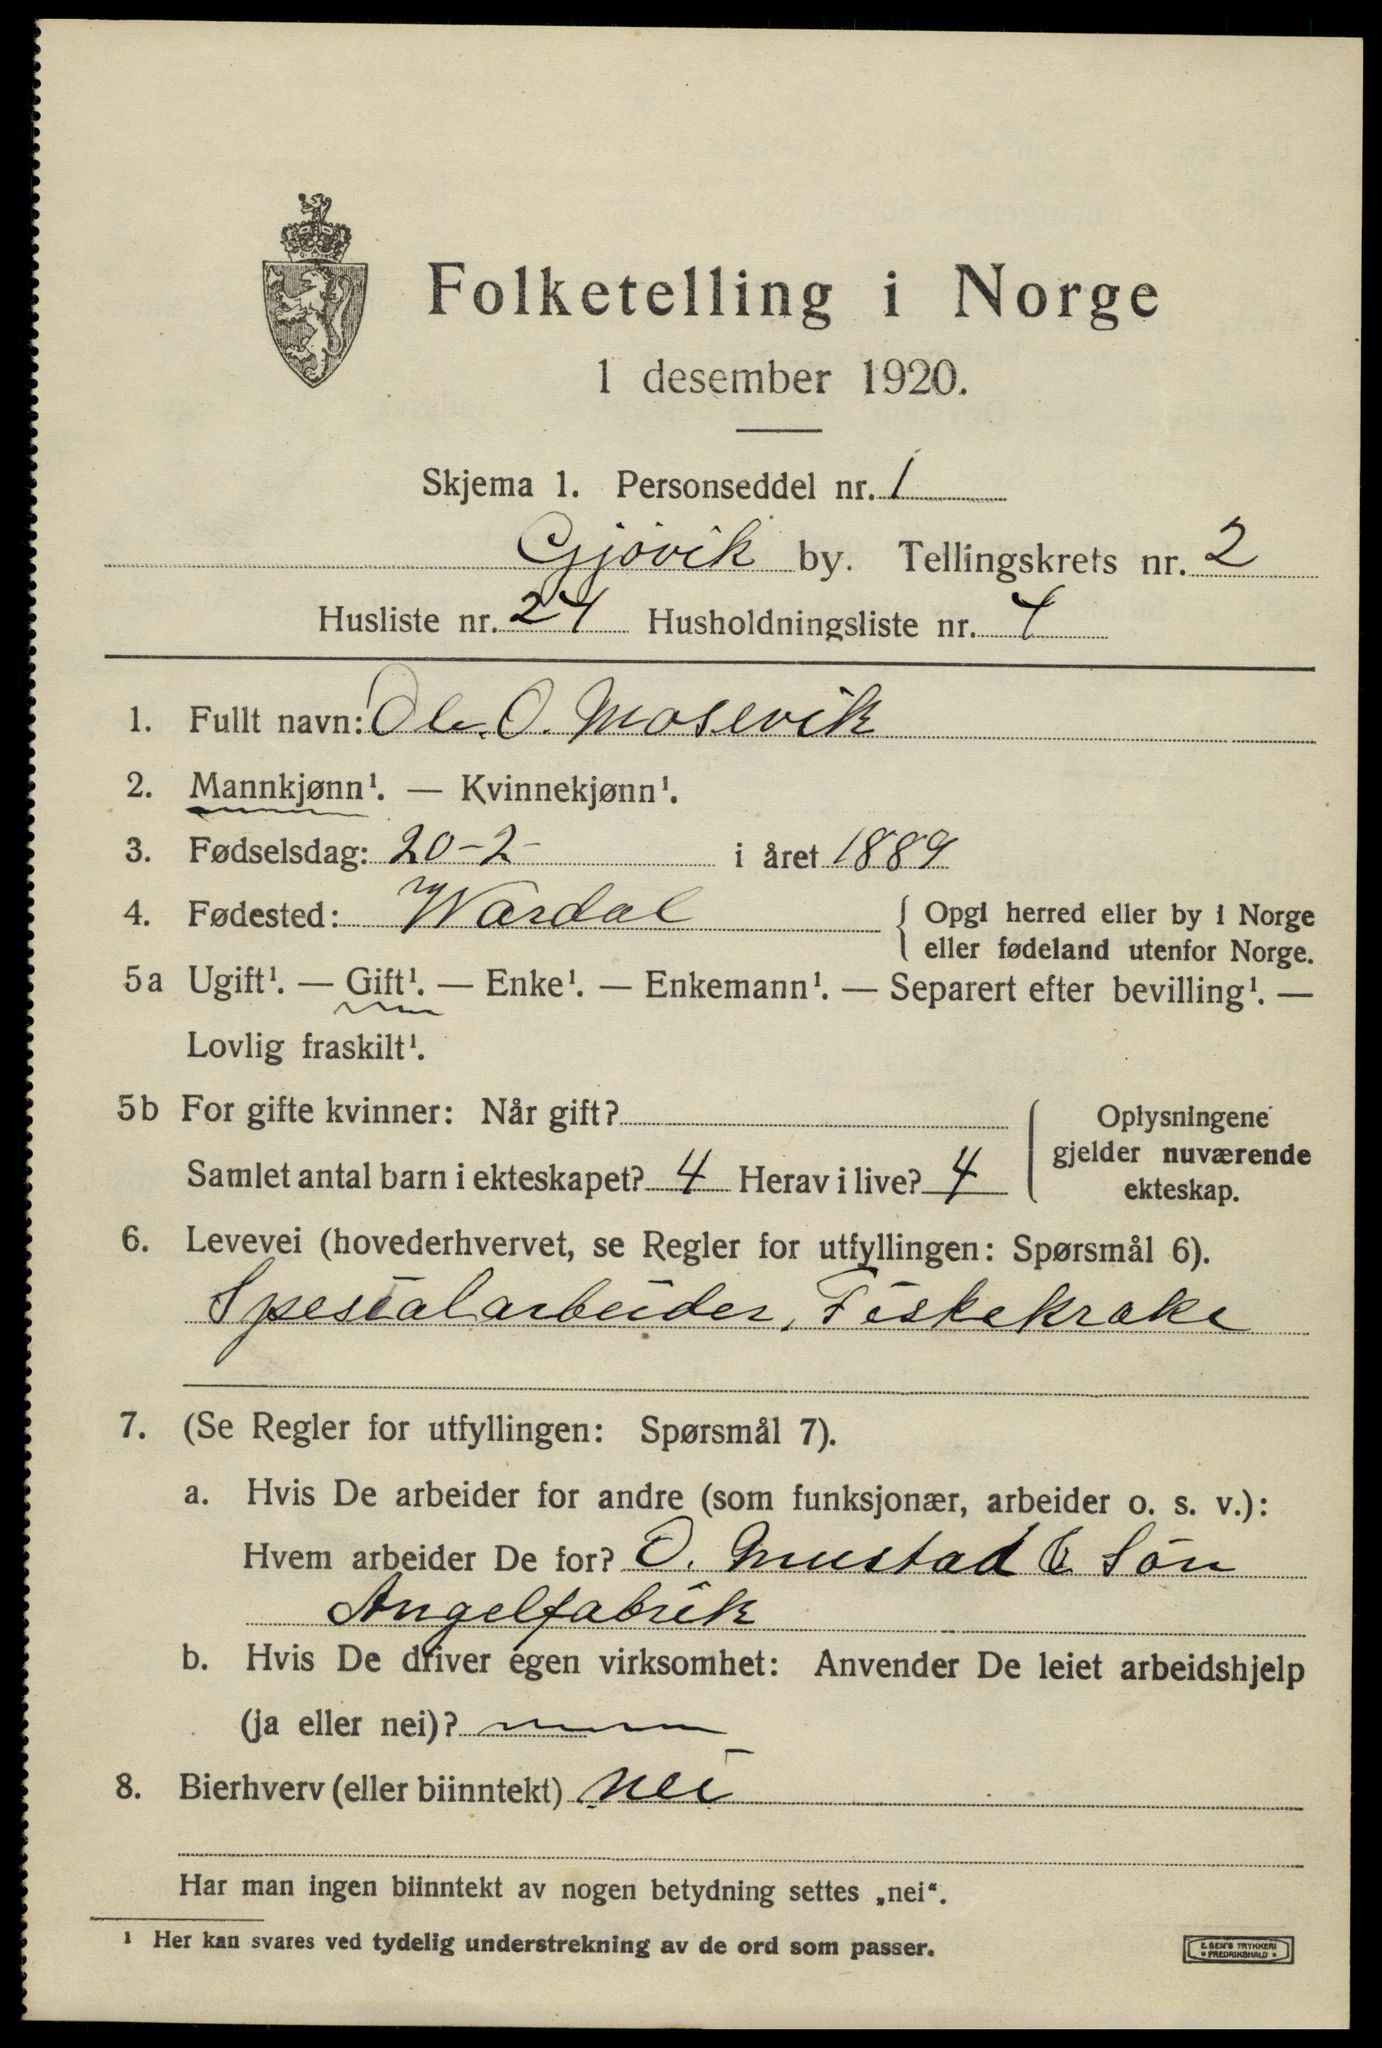 Folketelling i Norge
1 desember 1920.
Skjema 1. Personseddel nr. 1
Gjøvik by. Tellingskrets nr. 2
Husliste nr. 24 Husholdningsliste nr. 4
1. Fullt navn: Ole. O. Mosevik
2. Mannkjønn¹. — Kvinnekjønn¹.
3. Fødselsdag: 20-2- i året 1889
4. Fødested: Wardal { Opgi herred eller by i Norge
eller fødeland utenfor Norge.
5a Ugift¹. — Gift¹. — Enke¹. — Enkemann¹. — Separert efter bevilling¹. —
Lovlig fraskilt¹.
5b For gifte kvinner: Når gift? { Oplysningene
gjelder nuværende
Samlet antal barn i ekteskapet? 4 Herav i live? 4 ekteskap.
6. Levevei (hovederhvervet, se Regler for utfyllingen: Spørsmål 6).
Spesialarbeider, Fiskekroke
7. (Se Regler for utfyllingen: Spørsmål 7).
a. Hvis De arbeider for andre (som funksjonær, arbeider o. s. v.):
Hvem arbeider De for? O. Mustad & Søn
Angelfabrik
b. Hvis De driver egen virksomhet: Anvender De leiet arbeidshjelp
(ja eller nei)?
8. Bierhverv (eller biinntekt) nei
Har man ingen biinntekt av nogen betydning settes „nei“.
¹ Her kan svares ved tydelig understrekning av de ord som passer.
E. SEM'S TRYKKERI
• FREDRIKSHALD •